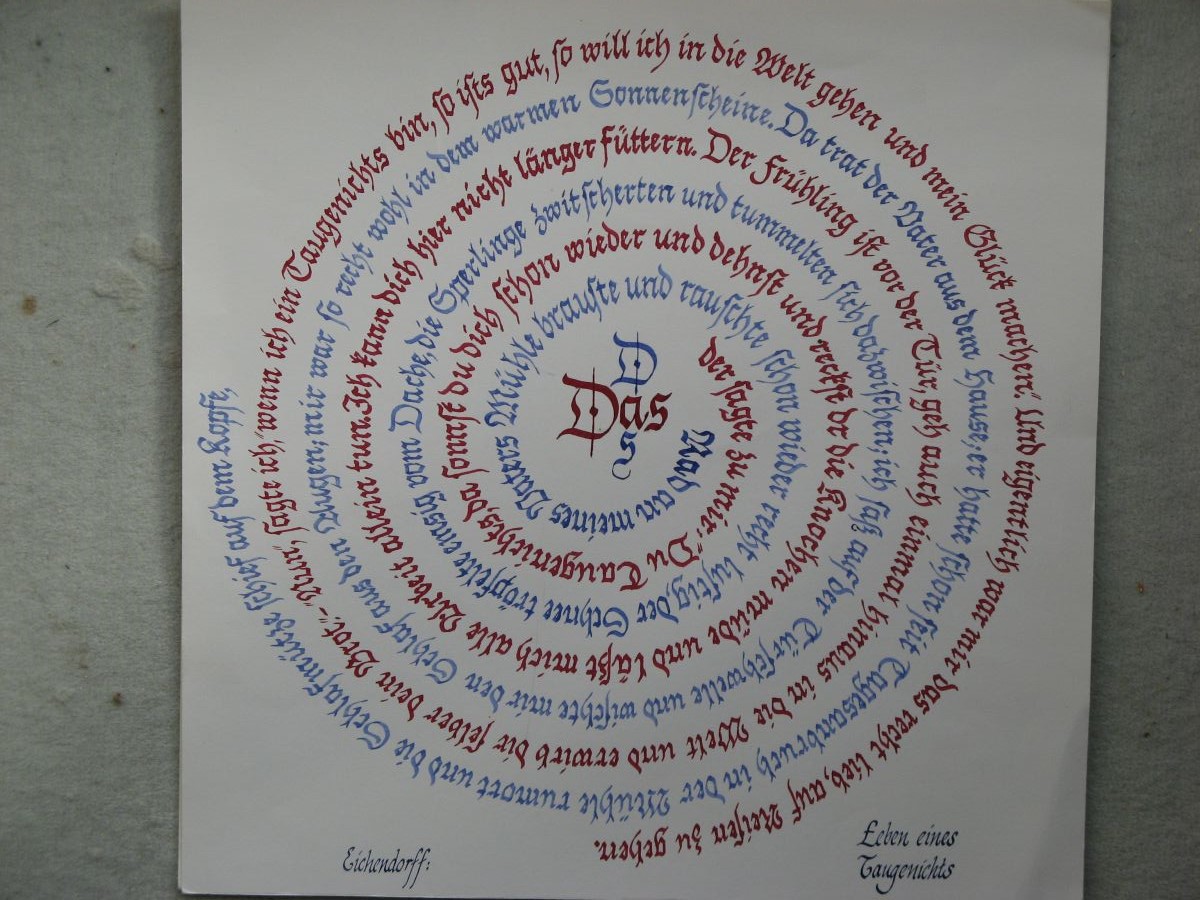 Das
Rad an meines Vaters Mühle brauste und rauschte schon wieder recht lustig, der Schnee tröpfelte emsig vom Dache, die Sperlinge zwitscherten und tummelten sich dazwischen; ich saß auf der Türschwelle und wischte mir den Schlaf aus den Augen; mir war so recht wohl in dem warmen Sonnenscheine. Da trat der Vater aus dem Hause; er hatte schon seit Tagesanbruch in der Mühle rumort und die Schlafmütze schief auf dem Kopfe,
der sagte zu mir: "Du Taugenichts, da sonnst du dich schon wieder und dehnst und reckst dir die Knochen müde und läßt mich alle Arbeit allein tun. Ich kann dich hier nicht länger füttern. Der Frühling ist vor der Tür, geh auch einmal hinaus in die Welt und erwirb dir selber dein Brot." – "Nun", sagte ich, "wenn ich ein Taugenichts bin, so ists gut, so will ich in die Welt gehen und mein Glück machen." Und eigentlich war mir das recht lieb, auf Reisen zu gehen.
Eichendorff:
Leben eines
Taugenichts